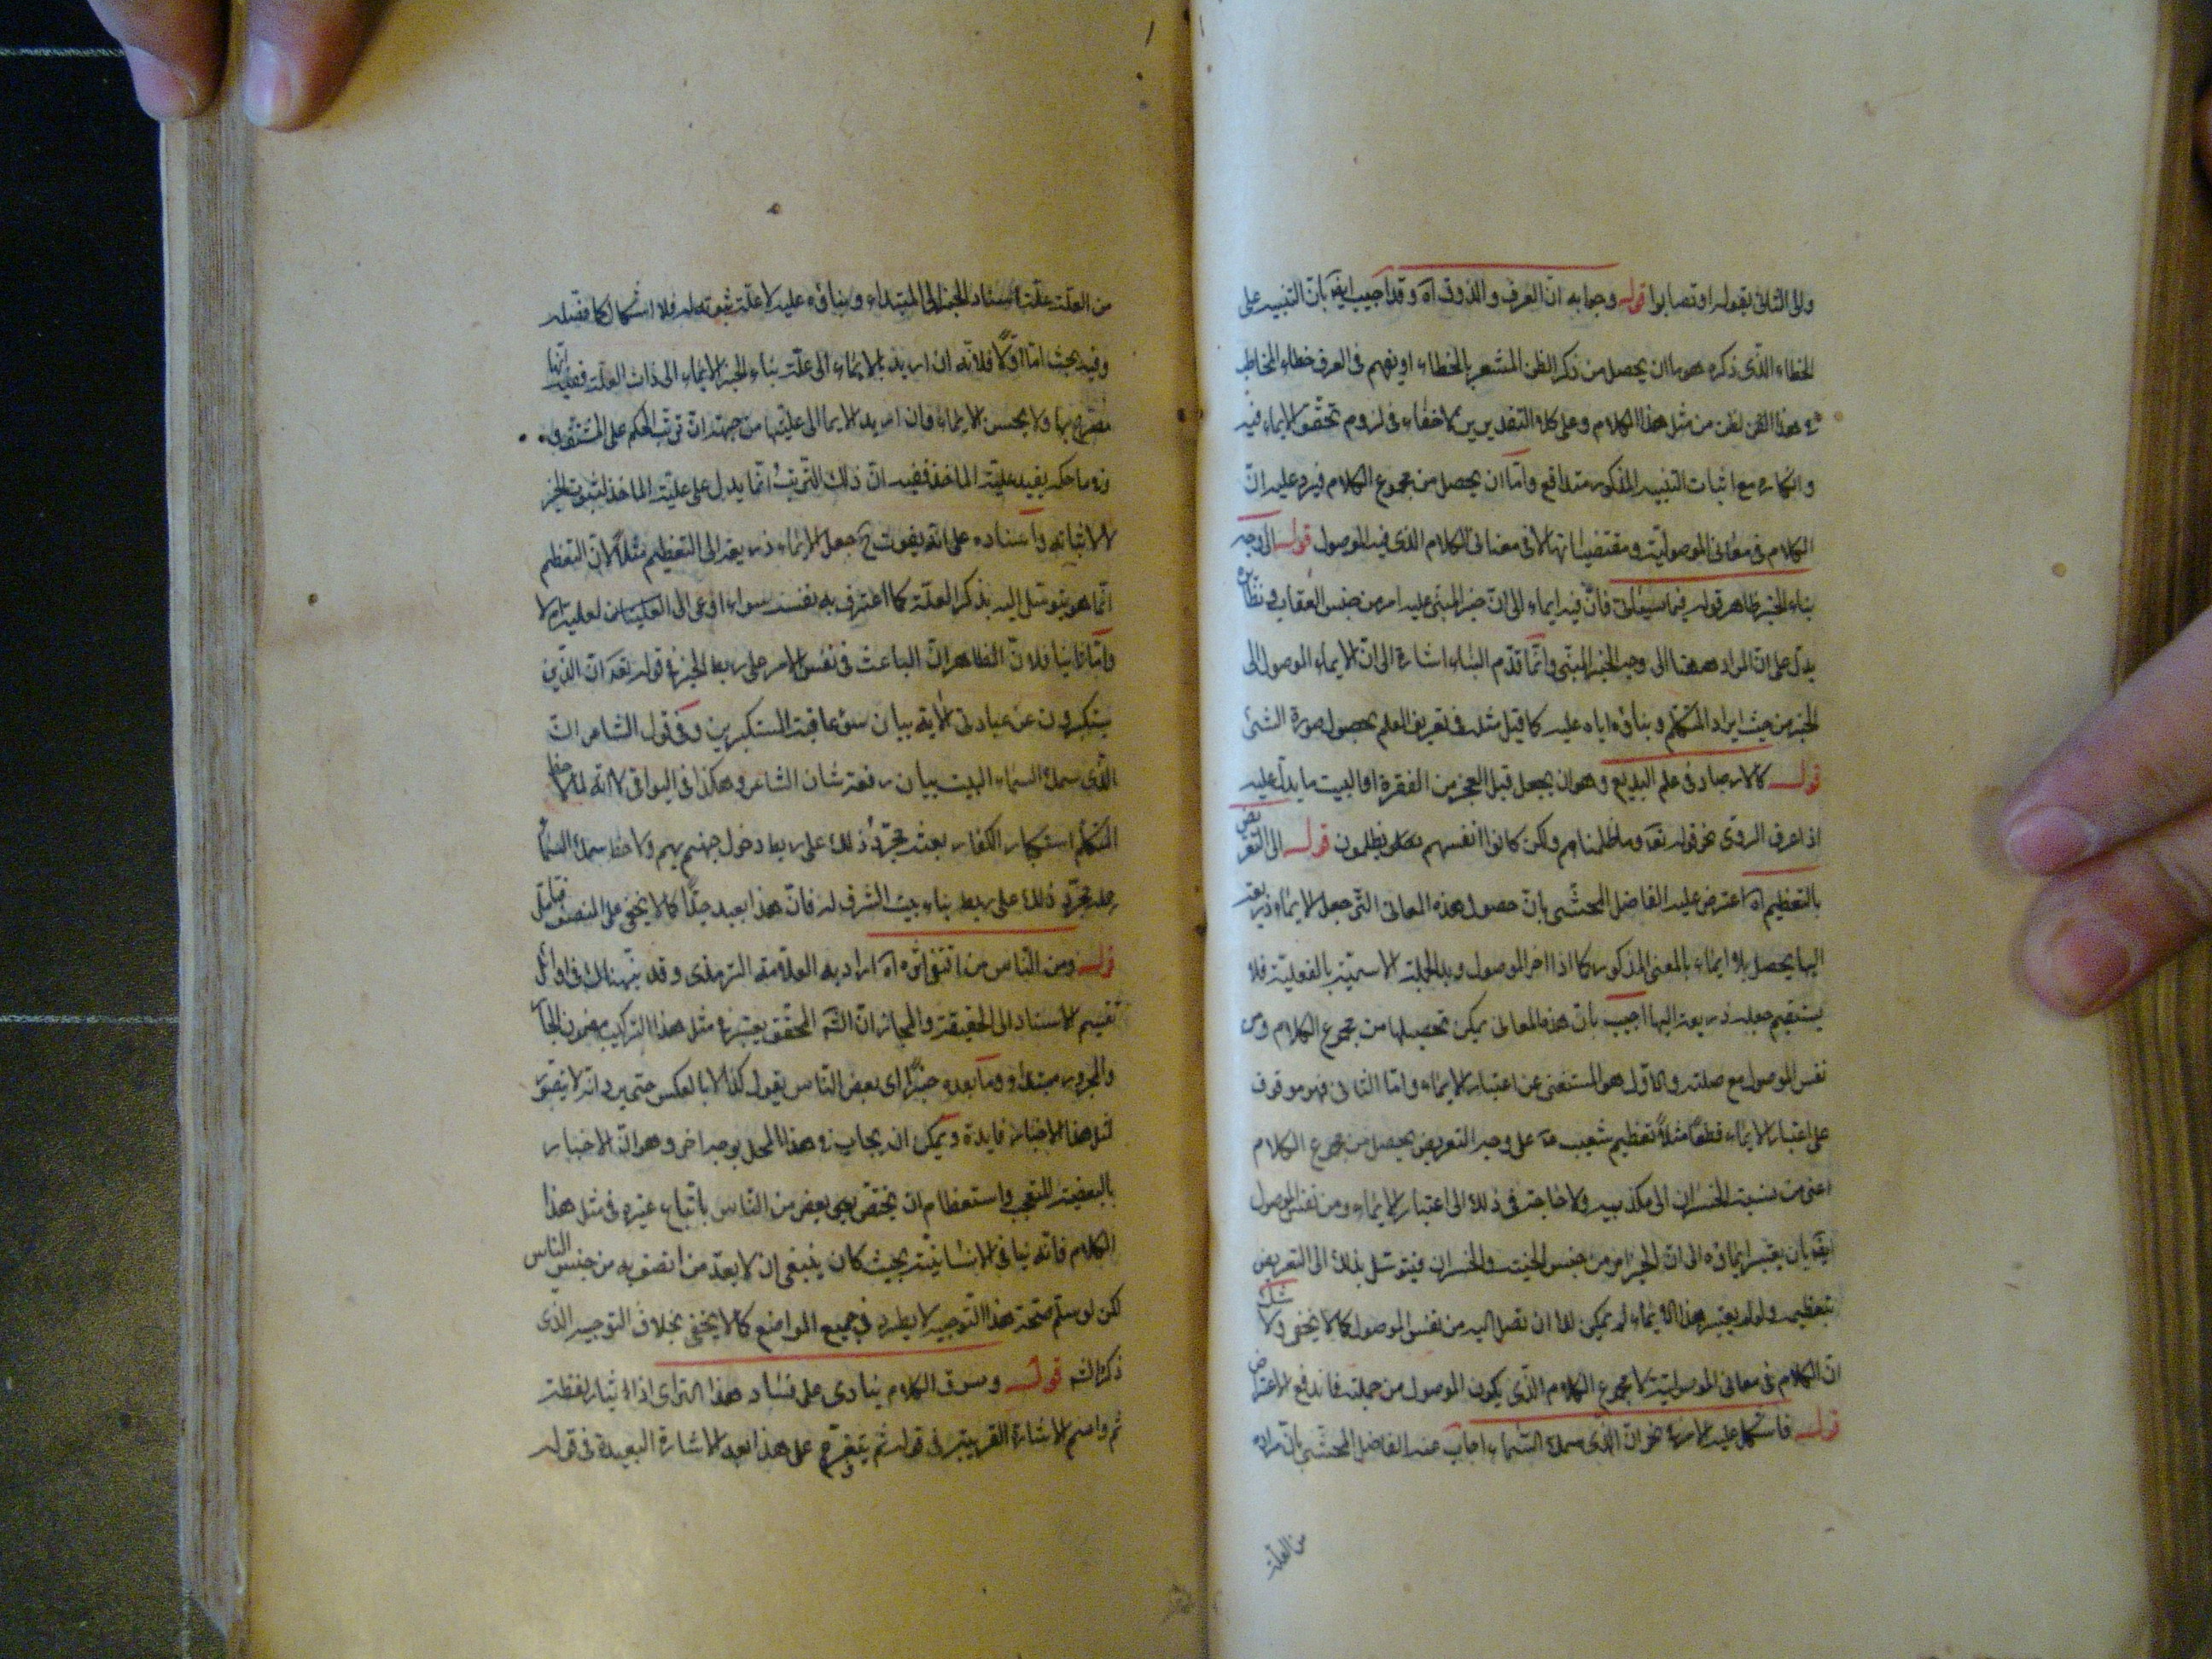 والى الثانى بقوله او تصابوا قوله وجوابه ان العرف والذوق اه وقد اجيب ايضه بان التنبيه على
الخطاء الذى ذكره هو ما ان يحصل من ذكر الظن المشعر بالخطاء او يفهم فى العرف خطاء المخاطب
فى هذا الظن من مثل هذا الكلام وعلى كلا التقديرين لا خفاء فى لزوم تحقق الايماء فيه
وانكاره مع اثبات التنبيه المذكور متدافع واما ان يحصل من مجموع الكلام فيرد عليه ان
الكلام فى معانى الموصولية ومقتضياتها لا فى معنا فى الكلام الذى فيه الموصول قوله الى وجه
بناء الخبر ظاهر قوله فيما سيأتى فان فيه ايماء الى ان خبر المبنى عليه امر من جنس العقاب ونظائره
يدل على ان المراد ههنا الى وجه الخبر المبنى وانما قدم البناء اشارة الى ان الايماء الموصول الى
الخبر من حيث ايراد المتكلم وبناؤه اياه عليه كما قيل مثله فى تعريف العلم بحصول صورة الشئ
قوله كالارصاد فى علم البديع وهو ان يجعل قبل العجز من الفقرة او البيت ما يدل عليه
اذا عرف الروى نحو قوله تعه وما ظلمناهم ولكن كانوا انفسهم يظلمون قوله الى التعريض
بالتعظيم اه اعترض عليه الفاضل المحشى بان حصول هذه المعانى التى جعل الايماء ذريعة
اليها يحصل بلا ايماء بالمعنى المذكور كما اذا اخر الموصول وبدل الجملة الاسمية بالفعلية فلا
يستقيم جعله ذريعة اليها اجيب بان هذه المعانى يمكن تحصيلها من مجموع الكلام ومن
نفس الموصول مع صلته والاول هو المستغنى عن اعتبار الايماء واما الثانى فهو موقوف
على اعتبار الايماء قطعا مثلا تعظيم شعيب عه على وجه التعريض يحصل من مجموع الكلام
اعنى من نسبة الخسران الى مكذبيه ولا حاجة فى ذلك الى اعتبار الايماء ومن نفس الموصول
ايضه بان يعتبر ايماؤه الى ان الخبر امر من جنس الخيبة والخسران فيتوسل بذلك الى التعريض
بتعظيمه ولو لم يعتبر هذا الايماء لم يمكن لك ان تصل اليه من نفس الموصول كما لا يخفى ولا شك
ان الكلام فى معانى الموصولية لا مجموع الكلام الذى يكون الموصول من جملته فاندفع الاعتراض
قوله فاشكل عليه الامر فى نحو ان الذى سمك السماء اجاب عنه الفاضل المحشى بان مراده
من العلة
من العلة علة اسناد الخبر الى المبتداء وبناؤه عليه لا علة ثبوته له فلا اشكال كما فصله
وفيه بحث اما اولا فلانه ان اريد بالايماء الى علة بناء الخبر الايماء الى ذات العلة ففيه انها
مصرح بها ولا يحسن الايماء وان اريد الايما الى عليتها من جهة ان ترتب الحكم على المشتق
وما فى حكمه يفيد علية الماخذ ففيه ان ذلك الترتيب انما يدل على علية الماخذ لثبوت الخبر
لا لاثباته واسناده على انه يفوت ح جعل الايماء ذريعة الى التعظيم مثلا لان التعظيم
انما هو يتوسل اليه بذكر العلة كما اعترف به نفسه سواء اومى الى العلية ام لا
واما ثانيا فلان الظاهر ان الباعث فى نفس الامر على ربط الخبر فى قوله تعه ان الذين
يستكبرون عن عبادتى الايه بيان سوء عاقبة المستكبرين وفى قول الشاعر ان
الذى سمك السماء البيت بيان رفعة شان الشاعر وهكذا فى البواقى لا انه لما لاحظ
المتكلم استكبار الكفار بعثه مجرد ذلك على ربط دخول جهنم بهم ولاحظ سمك السما
حمله مجرد ذلك على ربط بناء بيت الشرف له فان هذا بعيد جدا كما لا يخفى على المنصف فتامل
قوله ومن الناس من اقتفى اثره اه اراد به العلامة الترمذى وقد نبهناك فى اوائل
تقسيم الاسناد الى الحقيقة والمجاز ان الشه المحقق يعتبر فى مثل هذا التركيب مضمون الجار
والمجرور مبتداء وما بعده خبرا اى بعض الناس يقول كذا لا بالعكس حتى يرد انه لا يتصور
لمثل هذا الاخبار فايدة ويمكن ان يجاب فى هذا المحل بوجه اخر وهو ان الاخبار
بالبعضية للتعجب واستعظام ان يختص بعض من الناس باتباع غيره فى مثل هذا
الكلام فانه ينافى الانسانية بحيث كان ينبغى ان لا يعد من اتصف به من جنس الناس
لكن لو سلم صحة هذا التوجيه لا يطرد فى جميع المواضع كما لا يخفى بخلاف التوجيه الذى
ذكره الشه قوله وسوق الكلام ينادى على فساد هذا الراى اذ ايثار لفظة
ثم واسم الاشارة القريبة فى قوله ثم يتفرع على هذا بعد الاشارة البعيدة فى قوله